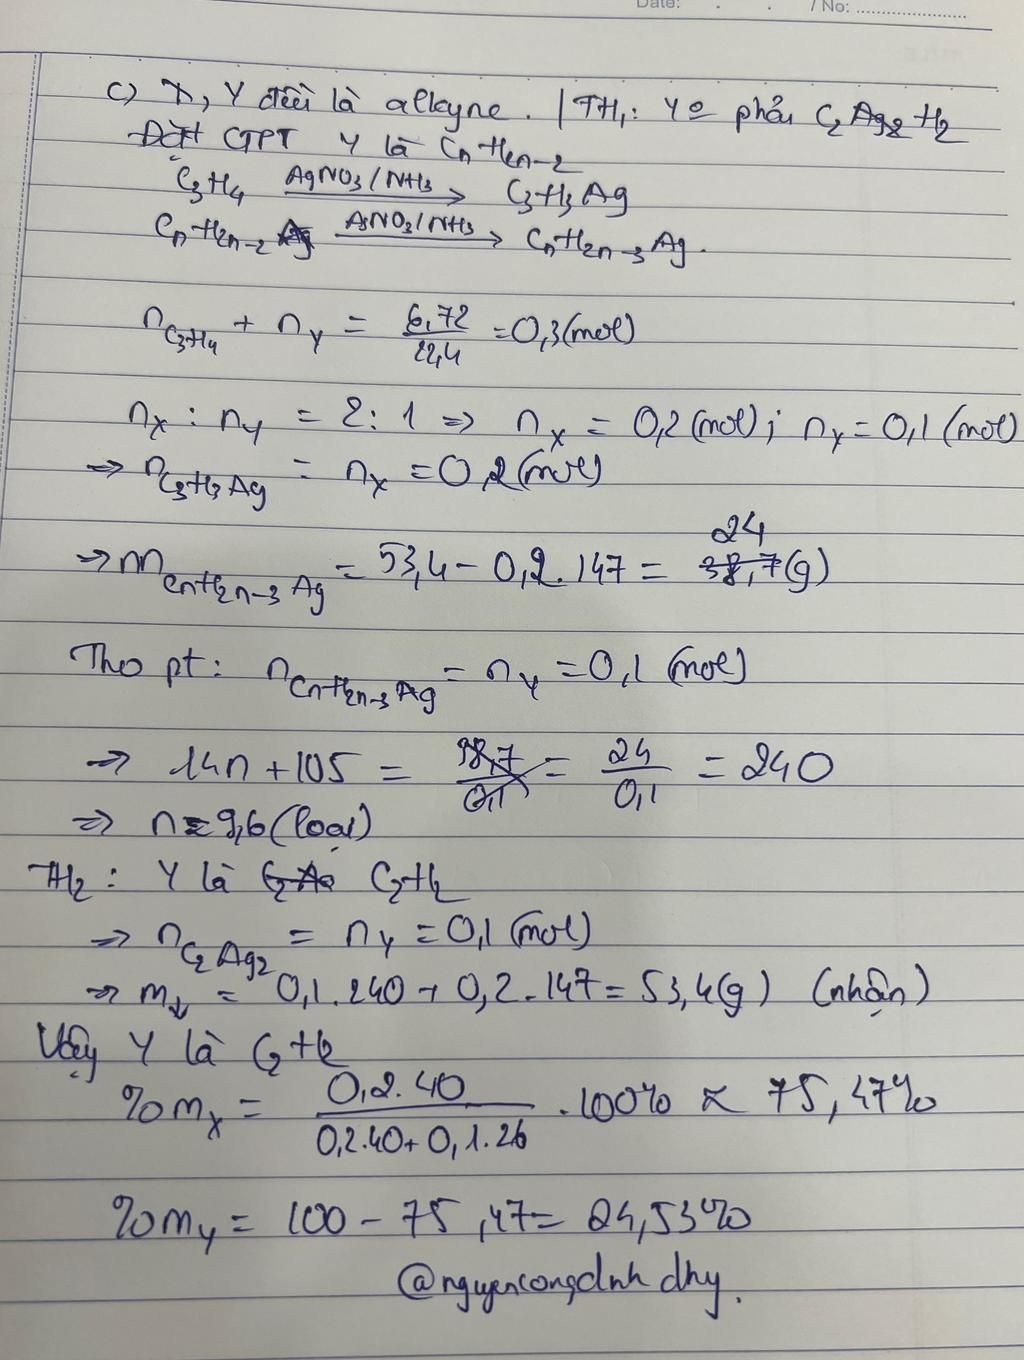 Date: . . / No: ..................
c) X, Y đều là alkyne. | TH₁: Y o phải C₂Ag₂ H₂
Đặt CTPT Y là CnH2n-2
C₃H₄ AgNO₃/NH₃ → C₃H₃Ag
CnH2n-2 AgNO₃/NH₃ → CnH2n-3Ag.
nC₃H₄ + nY = 6,72/22,4 = 0,3(mol)
nX : nY = 2:1 => nX = 0,2(mol); nY = 0,1(mol)
=> nC₃H₃Ag = nX = 0,2(mol)
24
=> mCnH2n-3Ag = 53,4 - 0,2.147 = 38,7(g)
Theo pt: nCnH2n-3Ag = nY = 0,1 (mol)
=> 14n + 105 = 38,7/0,1 = 24/0,1 = 240
=> n = 9,6 (loại)
TH₂: Y là C₂H₂
=> nC₂Ag₂ = nY = 0,1 (mol)
=> m↓ = 0,1.240 + 0,2.147 = 53,4(g) (nhận)
Vậy Y là C₂H₂
%mX = 0,2.40/0,2.40+0,1.26 .100% ≈ 75,47%
%mY = 100 - 75,47 = 24,53%
@nguyencongdnhdhy.